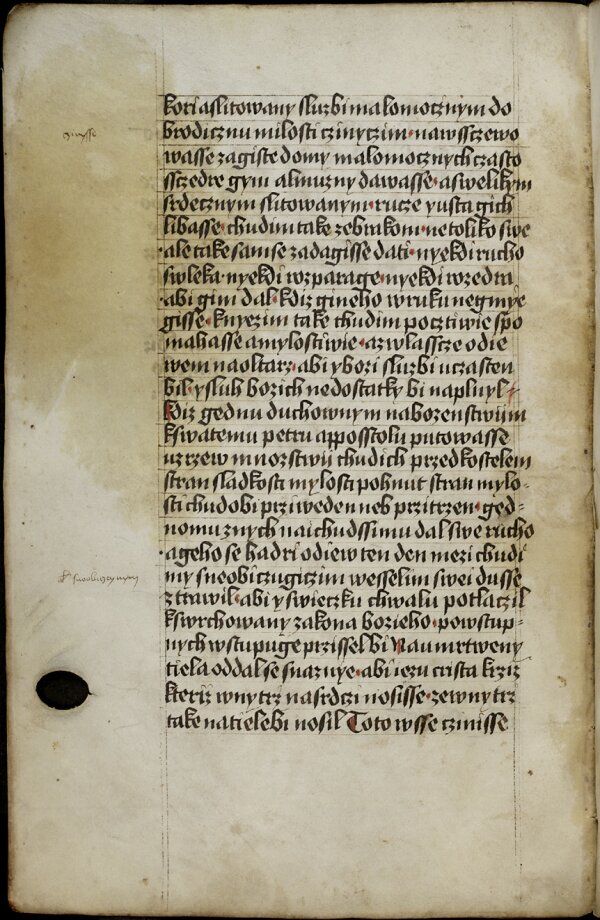 korz aslitowany sluzbi malomocznym do
gwysse
brodicznu milosti czinyczim nawssczewo
wasse zagiste domy malomocznych czasto
ssczedre gym almuzny dawasse aswelikym
srdecznym slitowanym rucze yusta gich
libasse chudim take zebrakom netoliko swe
ale take sam se zadagisse dati nyekdi rucho
swleka nyekdi wzparage nyekdi wzedra
abi gim dal kdiz gineho wruku negmye
gisse knyezim take chudim pocztiwie spo
mahasse amylostiwie azwlasscze odie
wem naoltarz abi ybozi sluzbi uczasten
bil ysluh bozich nedostatky bi naplnyl
kdiz gednu duchownym nabozenstwiim
kswatemu petru apposstolu putowasse
uzrzew mnozstwii chudich przedkostelem
stran sladkosti mylosti pohnut stran mylo
sti chudobi prziweden neb przitrzen ged
nomu znych naichudssimu dal swe rucho
ageho se hadri odiew ten den mezi chudi
my sneobiczugiczim wesselim swei dusse
ztrawil abi yswieczku chwalu potlaczil
kswrchowany zakona bozieho powstup
nych wstupuge przissel bi Naumrtweny
tiela oddal se snaznye abi iezu crista krziz
kteriz wnytrz nasrdczi nosisse zewnytrz
take natiele bi nosil Toto wsse czinisse